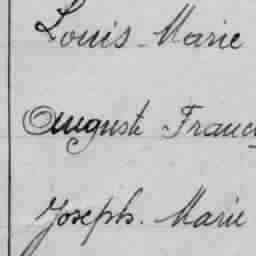 Louis Marie
Auguste Franc
Joseph. Marie